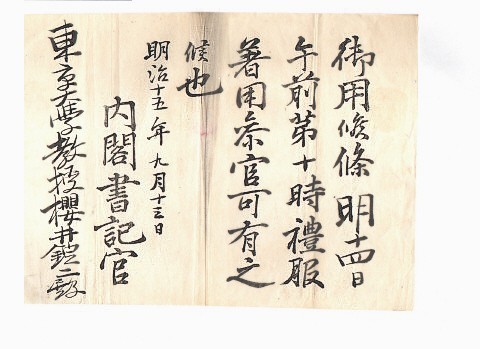 御用候條明十四日
午前第十時禮服
著用參官可有之
候也
明治十五年九月十三日
内閣書記官
東京大學教授櫻井錠二殿